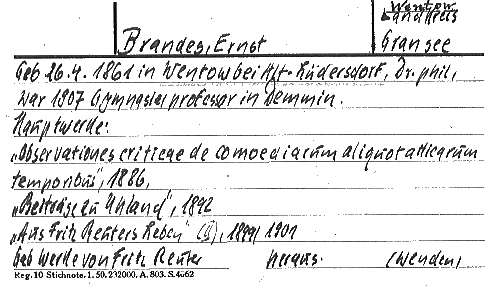 Wentow
Landkreis
Brandes, Ernst
Gransee
Geb 26.4. 1861 in Wentow bei Alt-Rüdersdorf, Dr. phil,
war 1907 Gymnasialprofessor in Demmin.
Hauptwerke:
„Observationes criticae de comoediarum aliquot atticarum
temporibus", 1886,
„Beiträge zu Uhland", 1892
„Aus Fritz Reuters Leben" 1899/1901
Gab Werke von Fritz Reuter heraus. (Wenden,
Reg. 10 Stichnote. 1. 50. 232000. A. 803. S. 4662